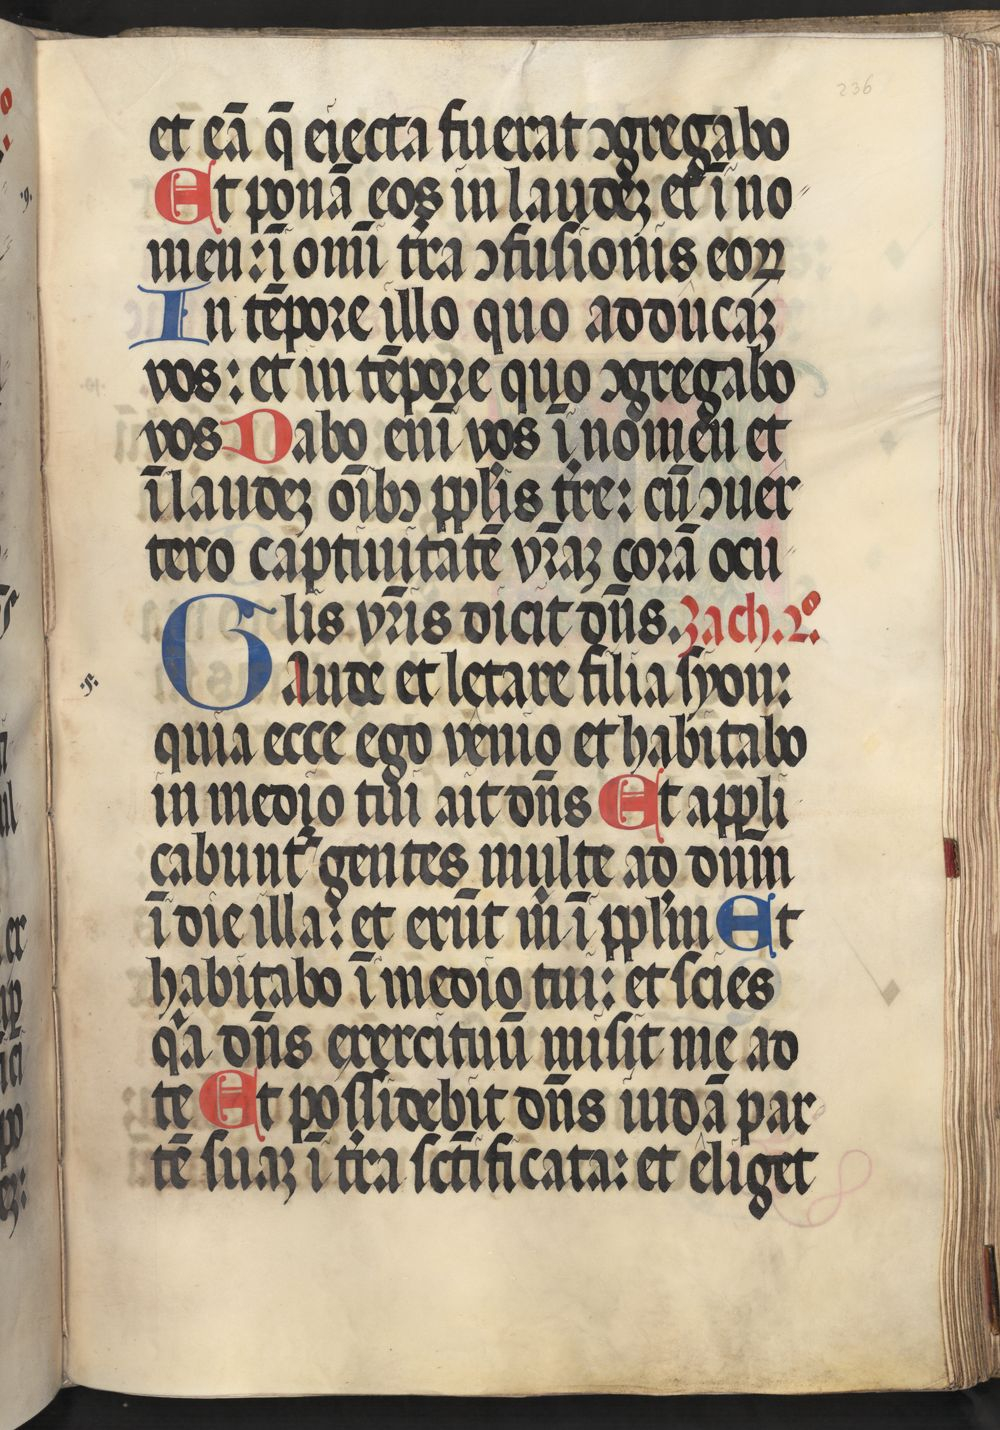 236
et eā q̄ eiecta fuerat ꝯgregabo
Et ponā eos in laudeꝫ et ī no
men: ī omī tr̄a ꝯfusionis eoꝝ
In tēpore illo quo adducaꝫ
vos: et in tēpore quo ꝯgregabo
vos Dabo enī vos ī nomen et
ī laudeꝫ oībꝫ ppl̄is tr̄e: cū ꝯuer
tero captiuitatē vr̄aꝫ corā ocu
lis vr̄is dicit dn̄s. Zach. 2º
Gaude et letare filia syon:
quia ecce ego venio et habitabo
in medio tui ait dn̄s Et appli
cabunt᷑ gentes multe ad dn̄m
ī die illa: et erūt m̄ ī ppl̄m Et
habitabo ī medio tui: et scies
qᷓa dn̄s exercituū misit me ad
te Et possidebit dn̄s iudā par
tē suaꝫ ī tr̄a sctīficata: et eliget